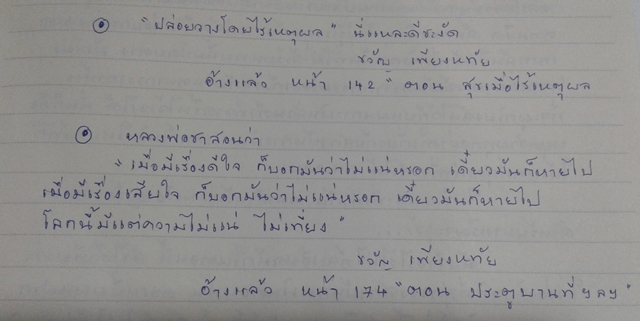 "ปล่อยวางโดยไร้เหตุผล" นี่แหละดีชะงัด
ขวัญ เพียงหทัย
อ้างแล้ว หน้า 142 " ตอน สุขเมื่อไร้เหตุผล
หลวงพ่อชาสอนว่า
"เมื่อมีเรื่องดีใจ ก็บอกมันว่าไม่แน่หรอก เดี๋ยวมันก็หายไป
เมื่อมีเรื่องเสียใจ ก็บอกมันว่าไม่แน่หรอก เดี๋ยวมันก็หายไป
โลกนี้มีแต่ความไม่แน่ ไม่เที่ยง"
ขวัญ เพียงหทัย
อ้างแล้ว หน้า 174 " ตอน ประตูบานที่ ฯลฯ"